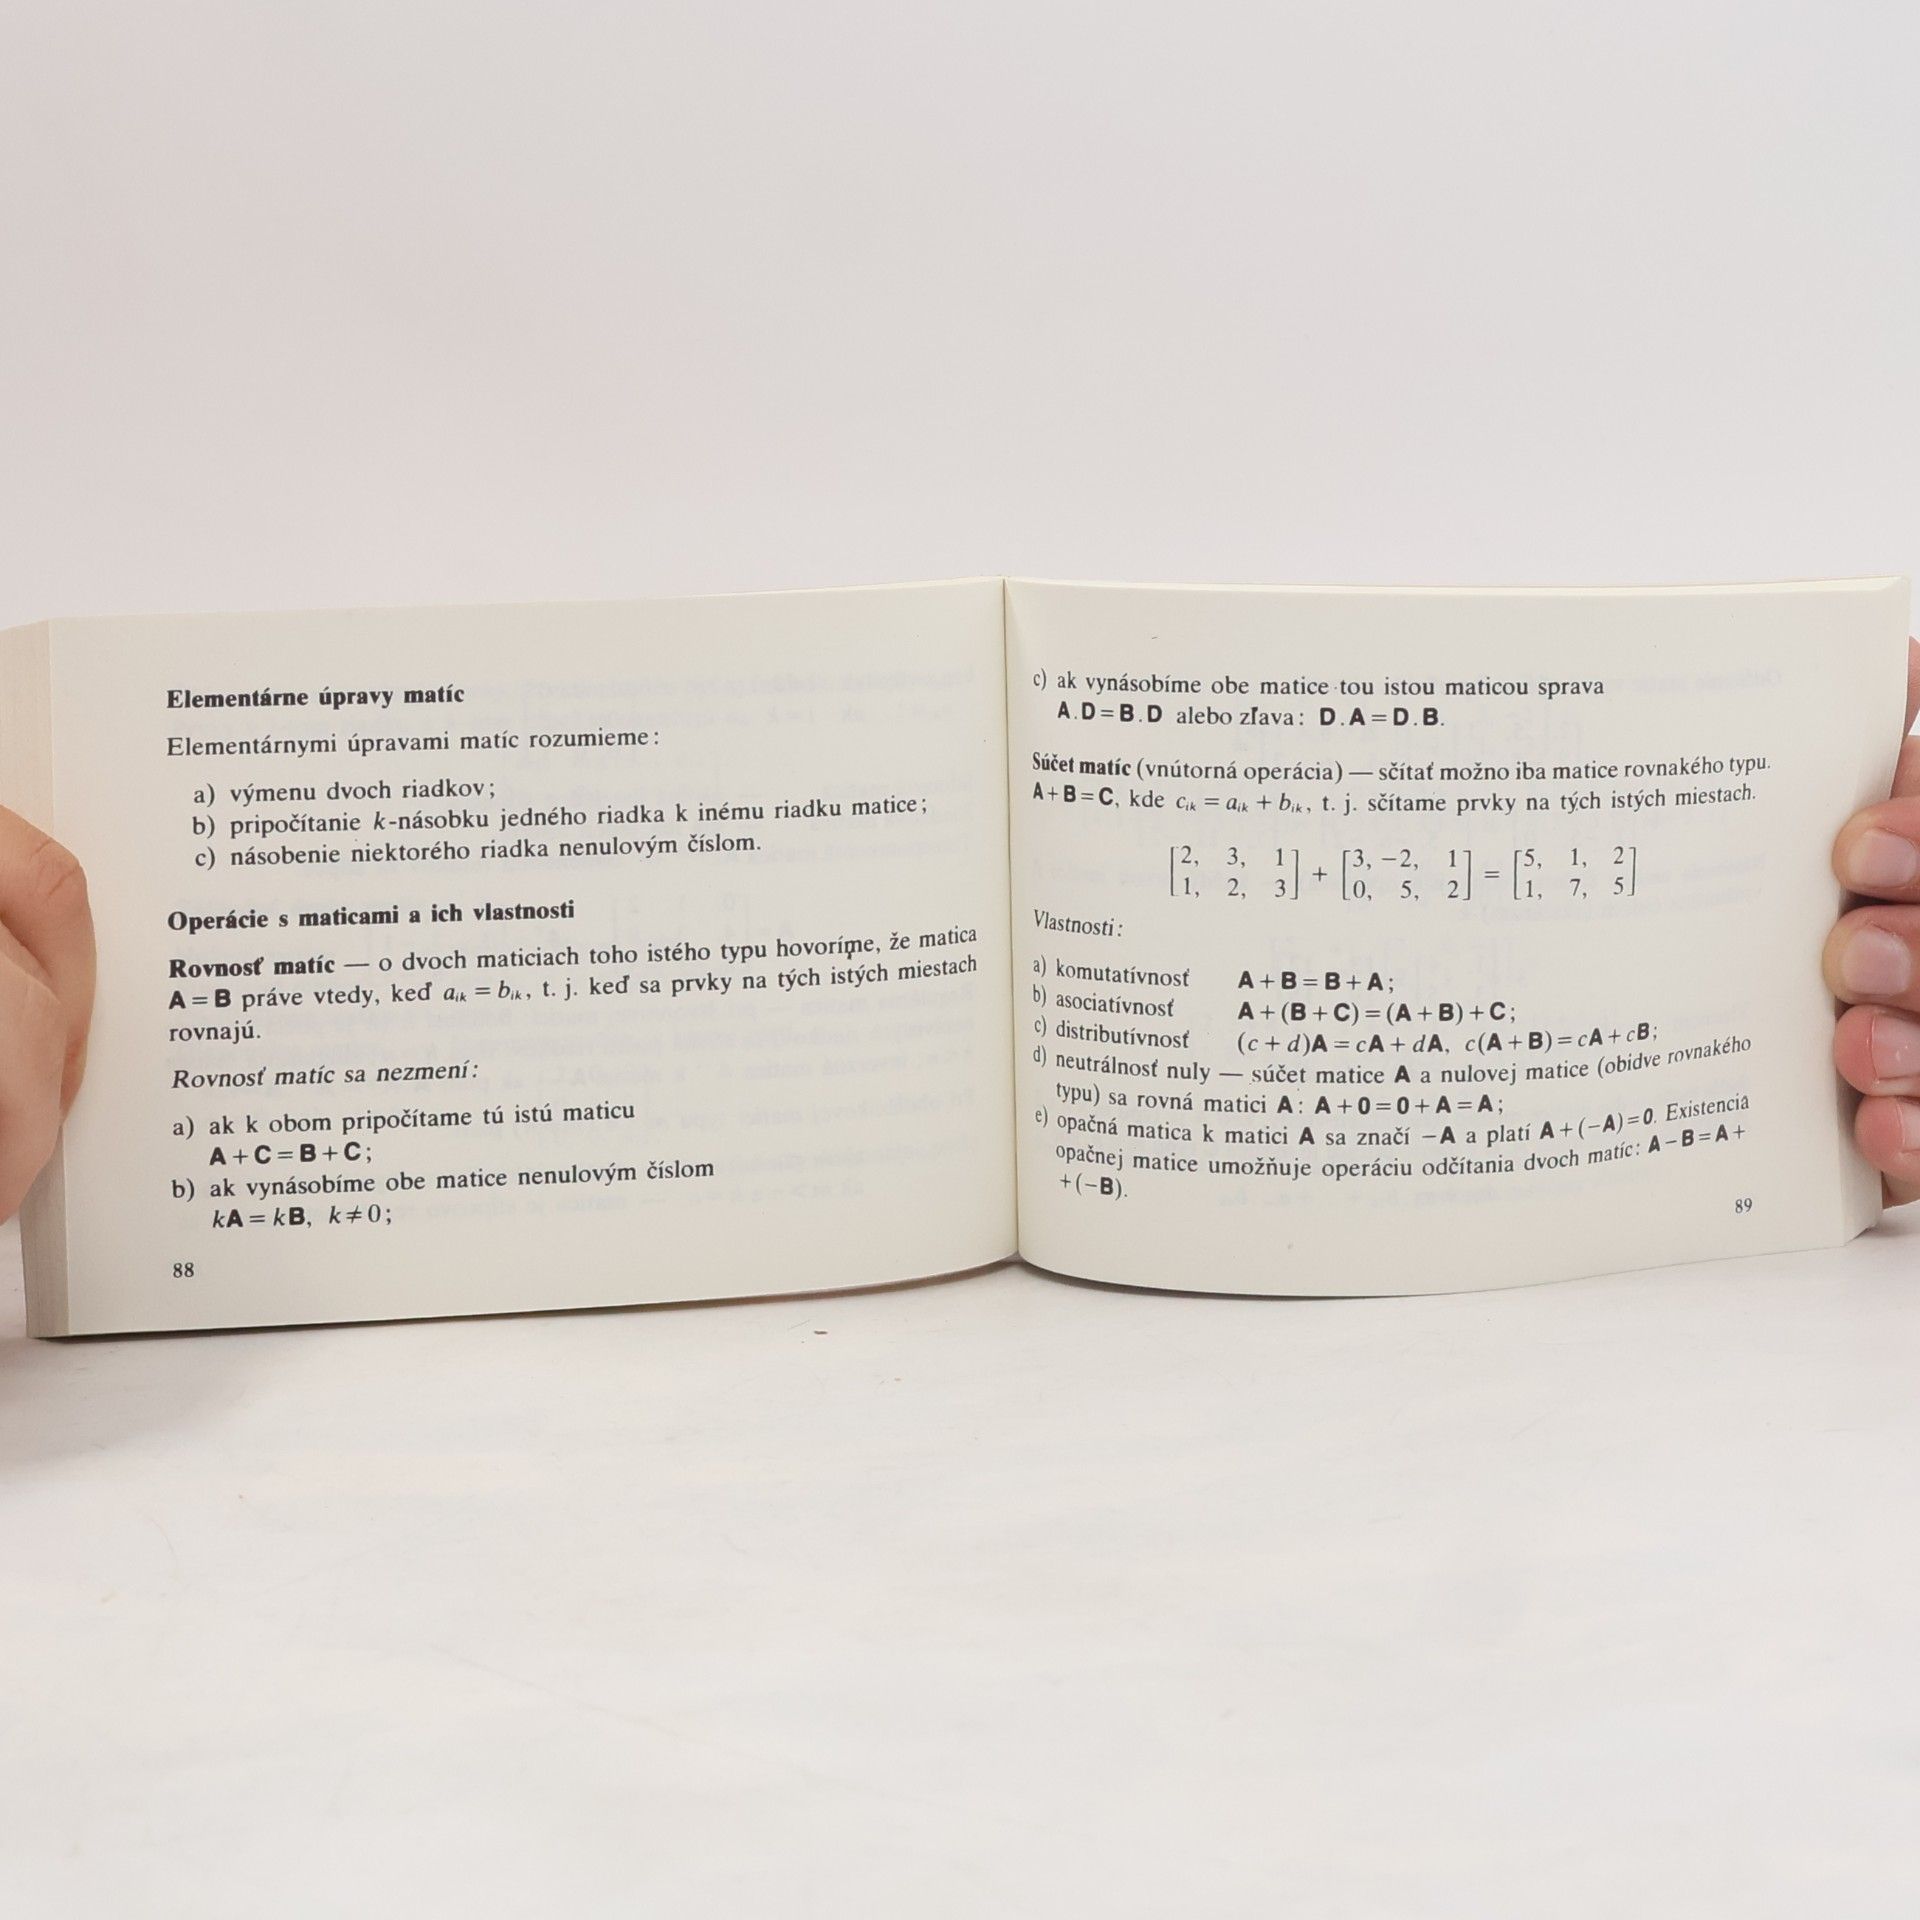 Elementárne úpravy matíc
Elementárnymi úpravami matíc rozumieme:
a) výmenu dvoch riadkov;
b) pripočítanie k-násobku jedného riadka k inému riadku matice;
c) násobenie niektorého riadka nenulovým číslom.
Operácie s maticami a ich vlastnosti
Rovnosť matíc — o dvoch maticiach toho istého typu hovoríme, že matica
A = B práve vtedy, keď aᵢₖ = bᵢₖ, t. j. keď sa prvky na tých istých miestach
rovnajú.
Rovnosť matíc sa nezmení:
a) ak k obom pripočítame tú istú maticu
A + C = B + C;
b) ak vynásobíme obe matice nenulovým číslom
kA = kB, k ≠ 0;
88
c) ak vynásobíme obe matice tou istou maticou sprava
A.D = B.D alebo zľava: D.A = D.B.
Súčet matíc (vnútorná operácia) — sčítať možno iba matice rovnakého typu.
A + B = C, kde cᵢₖ = aᵢₖ + bᵢₖ, t. j. sčítame prvky na tých istých miestach.
[2, 3, 1] + [3, −2, 1] = [5, 1, 2]
[1, 2, 3] [0, 5, 2] [1, 7, 5]
Vlastnosti:
a) komutatívnosť A + B = B + A;
b) asociatívnosť A + (B + C) = (A + B) + C;
c) distributívnosť (c + d)A = cA + dA, c(A + B) = cA + cB;
d) neutrálnosť nuly — súčet matice A a nulovej matice (obidve rovnakého
typu) sa rovná matici A: A + 0 = 0 + A = A;
e) opačná matica k matici A sa značí −A a platí A + (−A) = 0. Existencia
opačnej matice umožňuje operáciu odčítania dvoch matíc: A − B = A +
+ (−B).
89